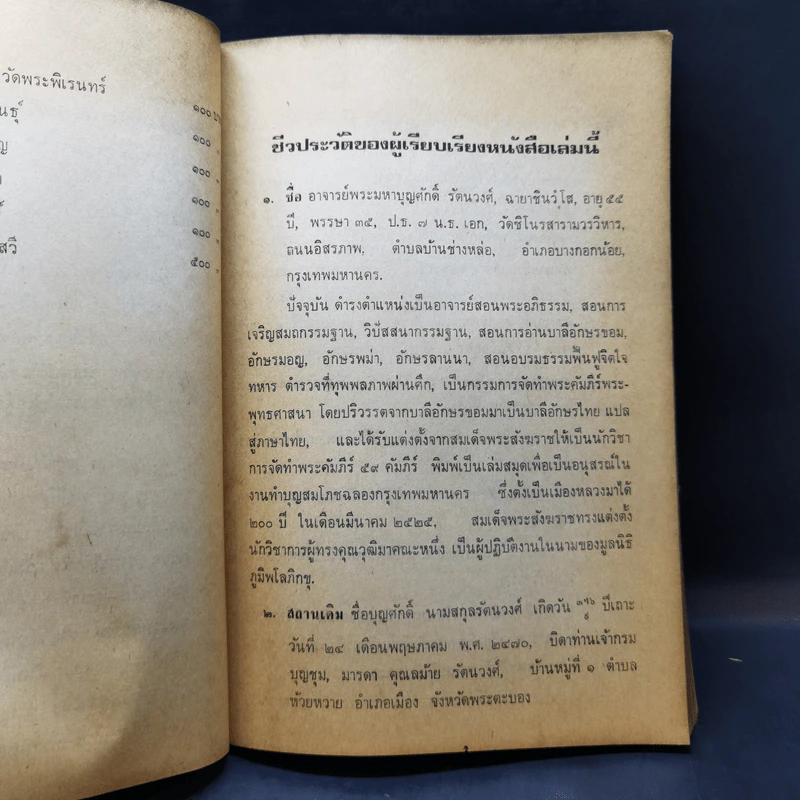 วัดพระพิเรนทร์
นธุ์
๑๐๐ บาท
ญ
๑๐๐ „
๑๐๐ „
๑๐๐ „
๑๐๐ „
สวี
๕๐๐ „
ชีวประวัติของผู้เรียบเรียงหนังสือเล่มนี้
๑. ชื่อ อาจารย์พระมหาบุญศักดิ์ รัตนวงศ์, ฉายาชินวํโส, อายุ ๕๕
ปี, พรรษา ๓๕, ป.ธ. ๗ น.ธ. เอก, วัดชิโนรสารามวรวิหาร,
ถนนอิสรภาพ, ตำบลบ้านช่างหล่อ, อำเภอบางกอกน้อย,
กรุงเทพมหานคร.
ปัจจุบัน ดำรงตำแหน่งเป็นอาจารย์สอนพระอภิธรรม, สอนการ
เจริญสมถกรรมฐาน, วิปัสสนากรรมฐาน, สอนการอ่านบาลีอักษรขอม,
อักษรมอญ, อักษรพม่า, อักษรลานนา, สอนอบรมธรรมฟื้นฟูจิตใจ
ทหาร ตำรวจที่ทุพพลภาพผ่านศึก, เป็นกรรมการจัดทำพระคัมภีร์พระ-
พุทธศาสนา โดยปริวรรตจากบาลีอักษรขอมมาเป็นบาลีอักษรไทย แปล
สู่ภาษาไทย, และได้รับแต่งตั้งจากสมเด็จพระสังฆราชให้เป็นนักวิชา
การจัดทำพระคัมภีร์ ๕๙ คัมภีร์ พิมพ์เป็นเล่มสมุดเพื่อเป็นอนุสรณ์ใน
งานทำบุญสมโภชฉลองกรุงเทพมหานคร ซึ่งตั้งเป็นเมืองหลวงมาได้
๒๐๐ ปี ในเดือนมีนาคม ๒๕๒๕, สมเด็จพระสังฆราชทรงแต่งตั้ง
นักวิชาการผู้ทรงคุณวุฒิมาคณะหนึ่ง เป็นผู้ปฏิบัติงานในนามของมูลนิธิ
ภูมิพโลภิกขุ.
๒. สถานเดิม ชื่อบุญศักดิ์ นามสกุลรัตนวงศ์ เกิดวัน ปีเถาะ
วันที่ ๒๔ เดือนพฤษภาคม พ.ศ. ๒๔๗๐, บิดาท่านเจ้ากรม
บุญชุม, มารดา คุณลม้าย รัตนวงศ์, บ้านหมู่ที่ ๑ ตำบล
ห้วยหวาย อำเภอเมือง จังหวัดพระตะบอง